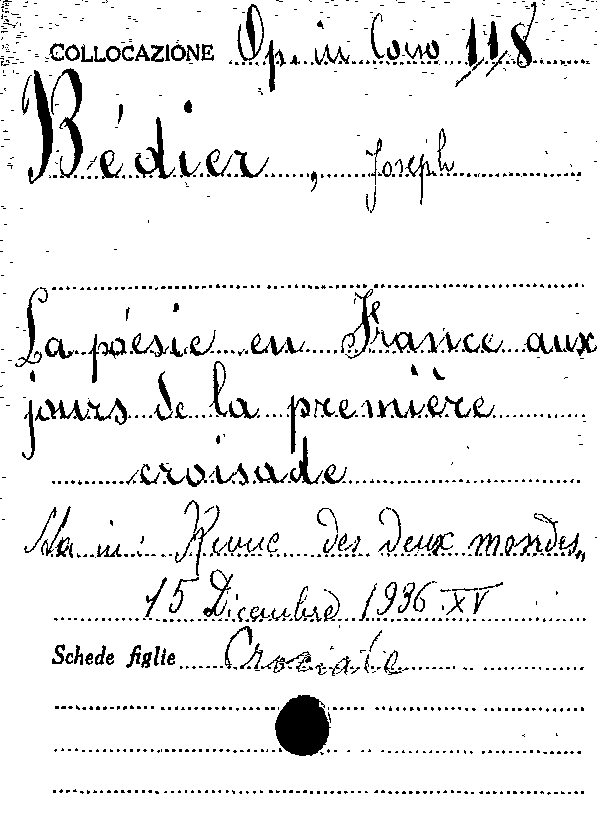 COLLOCAZIONE Op. in Coso 118
Bédier, Joseph
La poésie en France aux
jours de la première
croisade
Sta in: Revue des deux mondes,,
15 Dicembre 1936 XV
Schede figlie Crociate